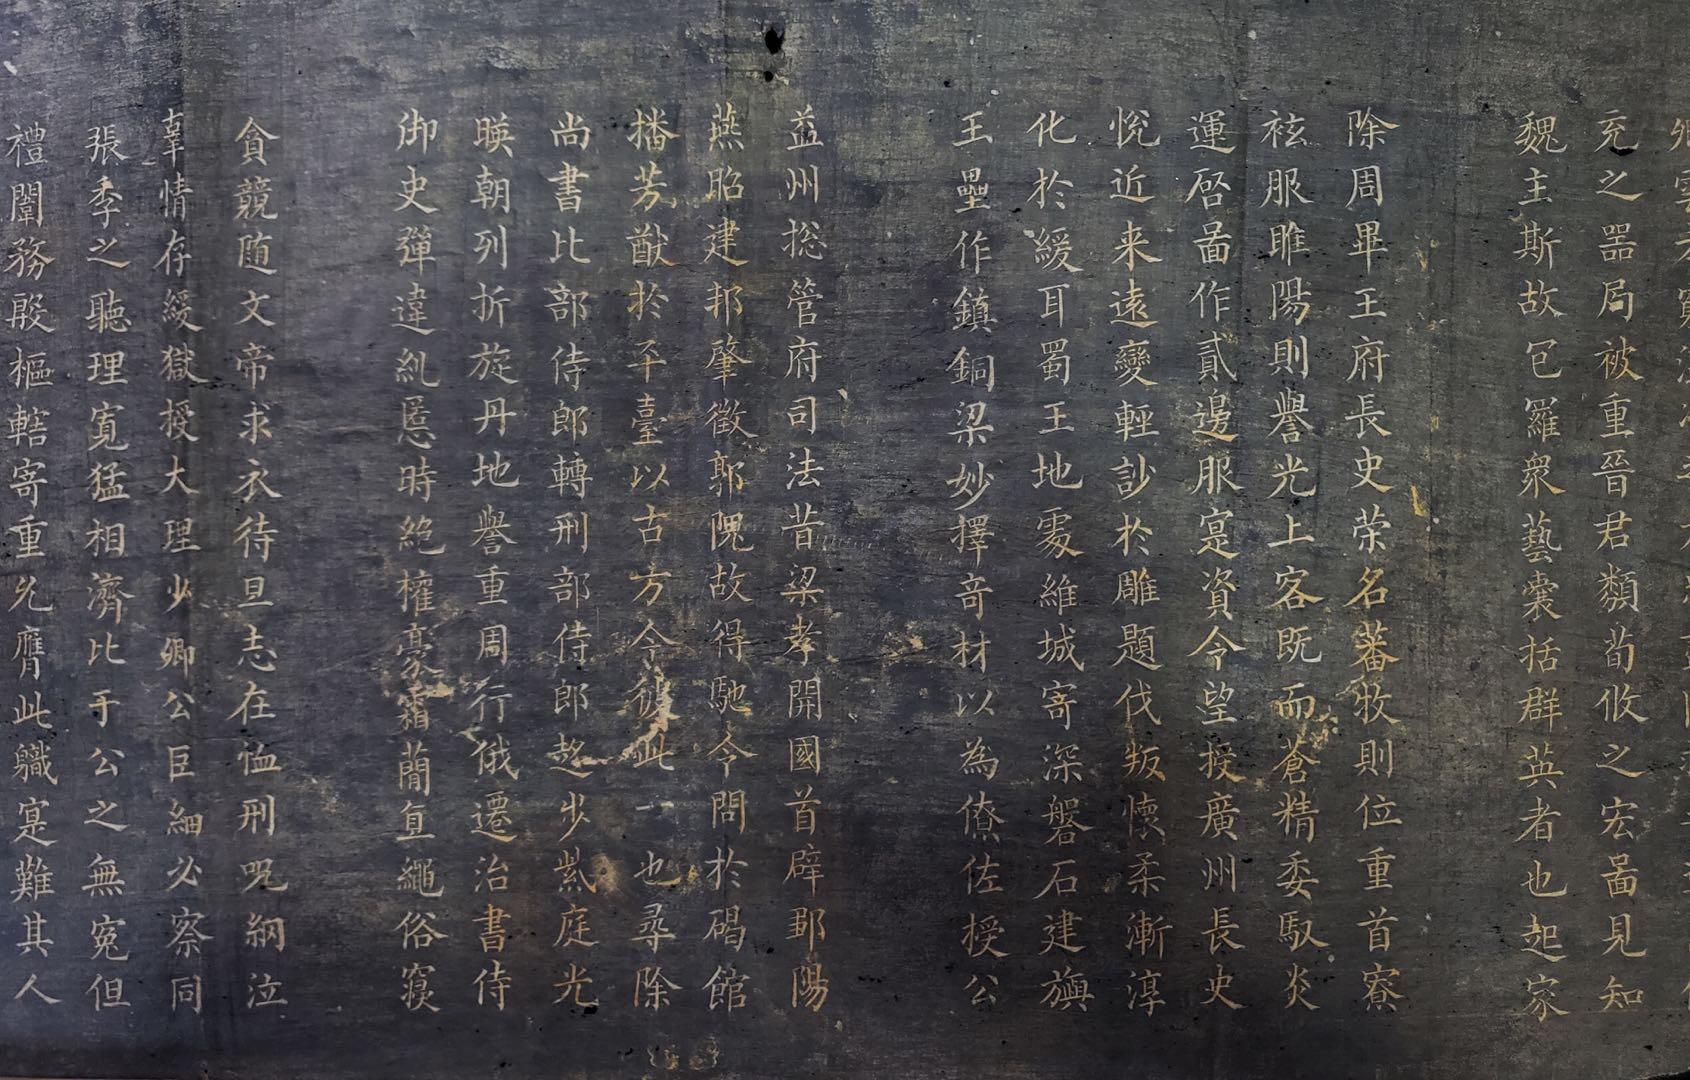 充之器局被重晉君類荀攸之宏啚見知
魏主斯故包羅衆藝囊括群英者也起家
除周畢王府長史荣名蕃牧則位重首寮
袨服睢陽則譽光上客既而蒼精委馭炎
運啓啚作貳邊服寔資令望授廣州長史
悅近来遠變輕訬於雕題伐叛懷柔漸淳
化於緩耳蜀王地處維城寄深磐石建旟
玉壘作鎮銅梁妙擇竒材以為僚佐授公
益州揔管府司法昔梁孝開國首辟鄒陽
燕昭建邦肇徵郭隗故得馳令問於碣館
播芳猷於平臺以古方今彼此一也尋除
尚書比部侍郎轉刑部侍郎趍步紫庭光
暎朝列折旋丹地譽重周行俄遷治書侍
御史彈違糺慝時絶權豪霜簡直繩俗寢
貪競随文帝求衣待旦志在恤刑咒網泣
辜情存緩獄授大理少卿公巨細必察同
張季之聽理寬猛相濟比于公之無冤但
禮闈務殷樞轄寄重允膺此職寔難其人